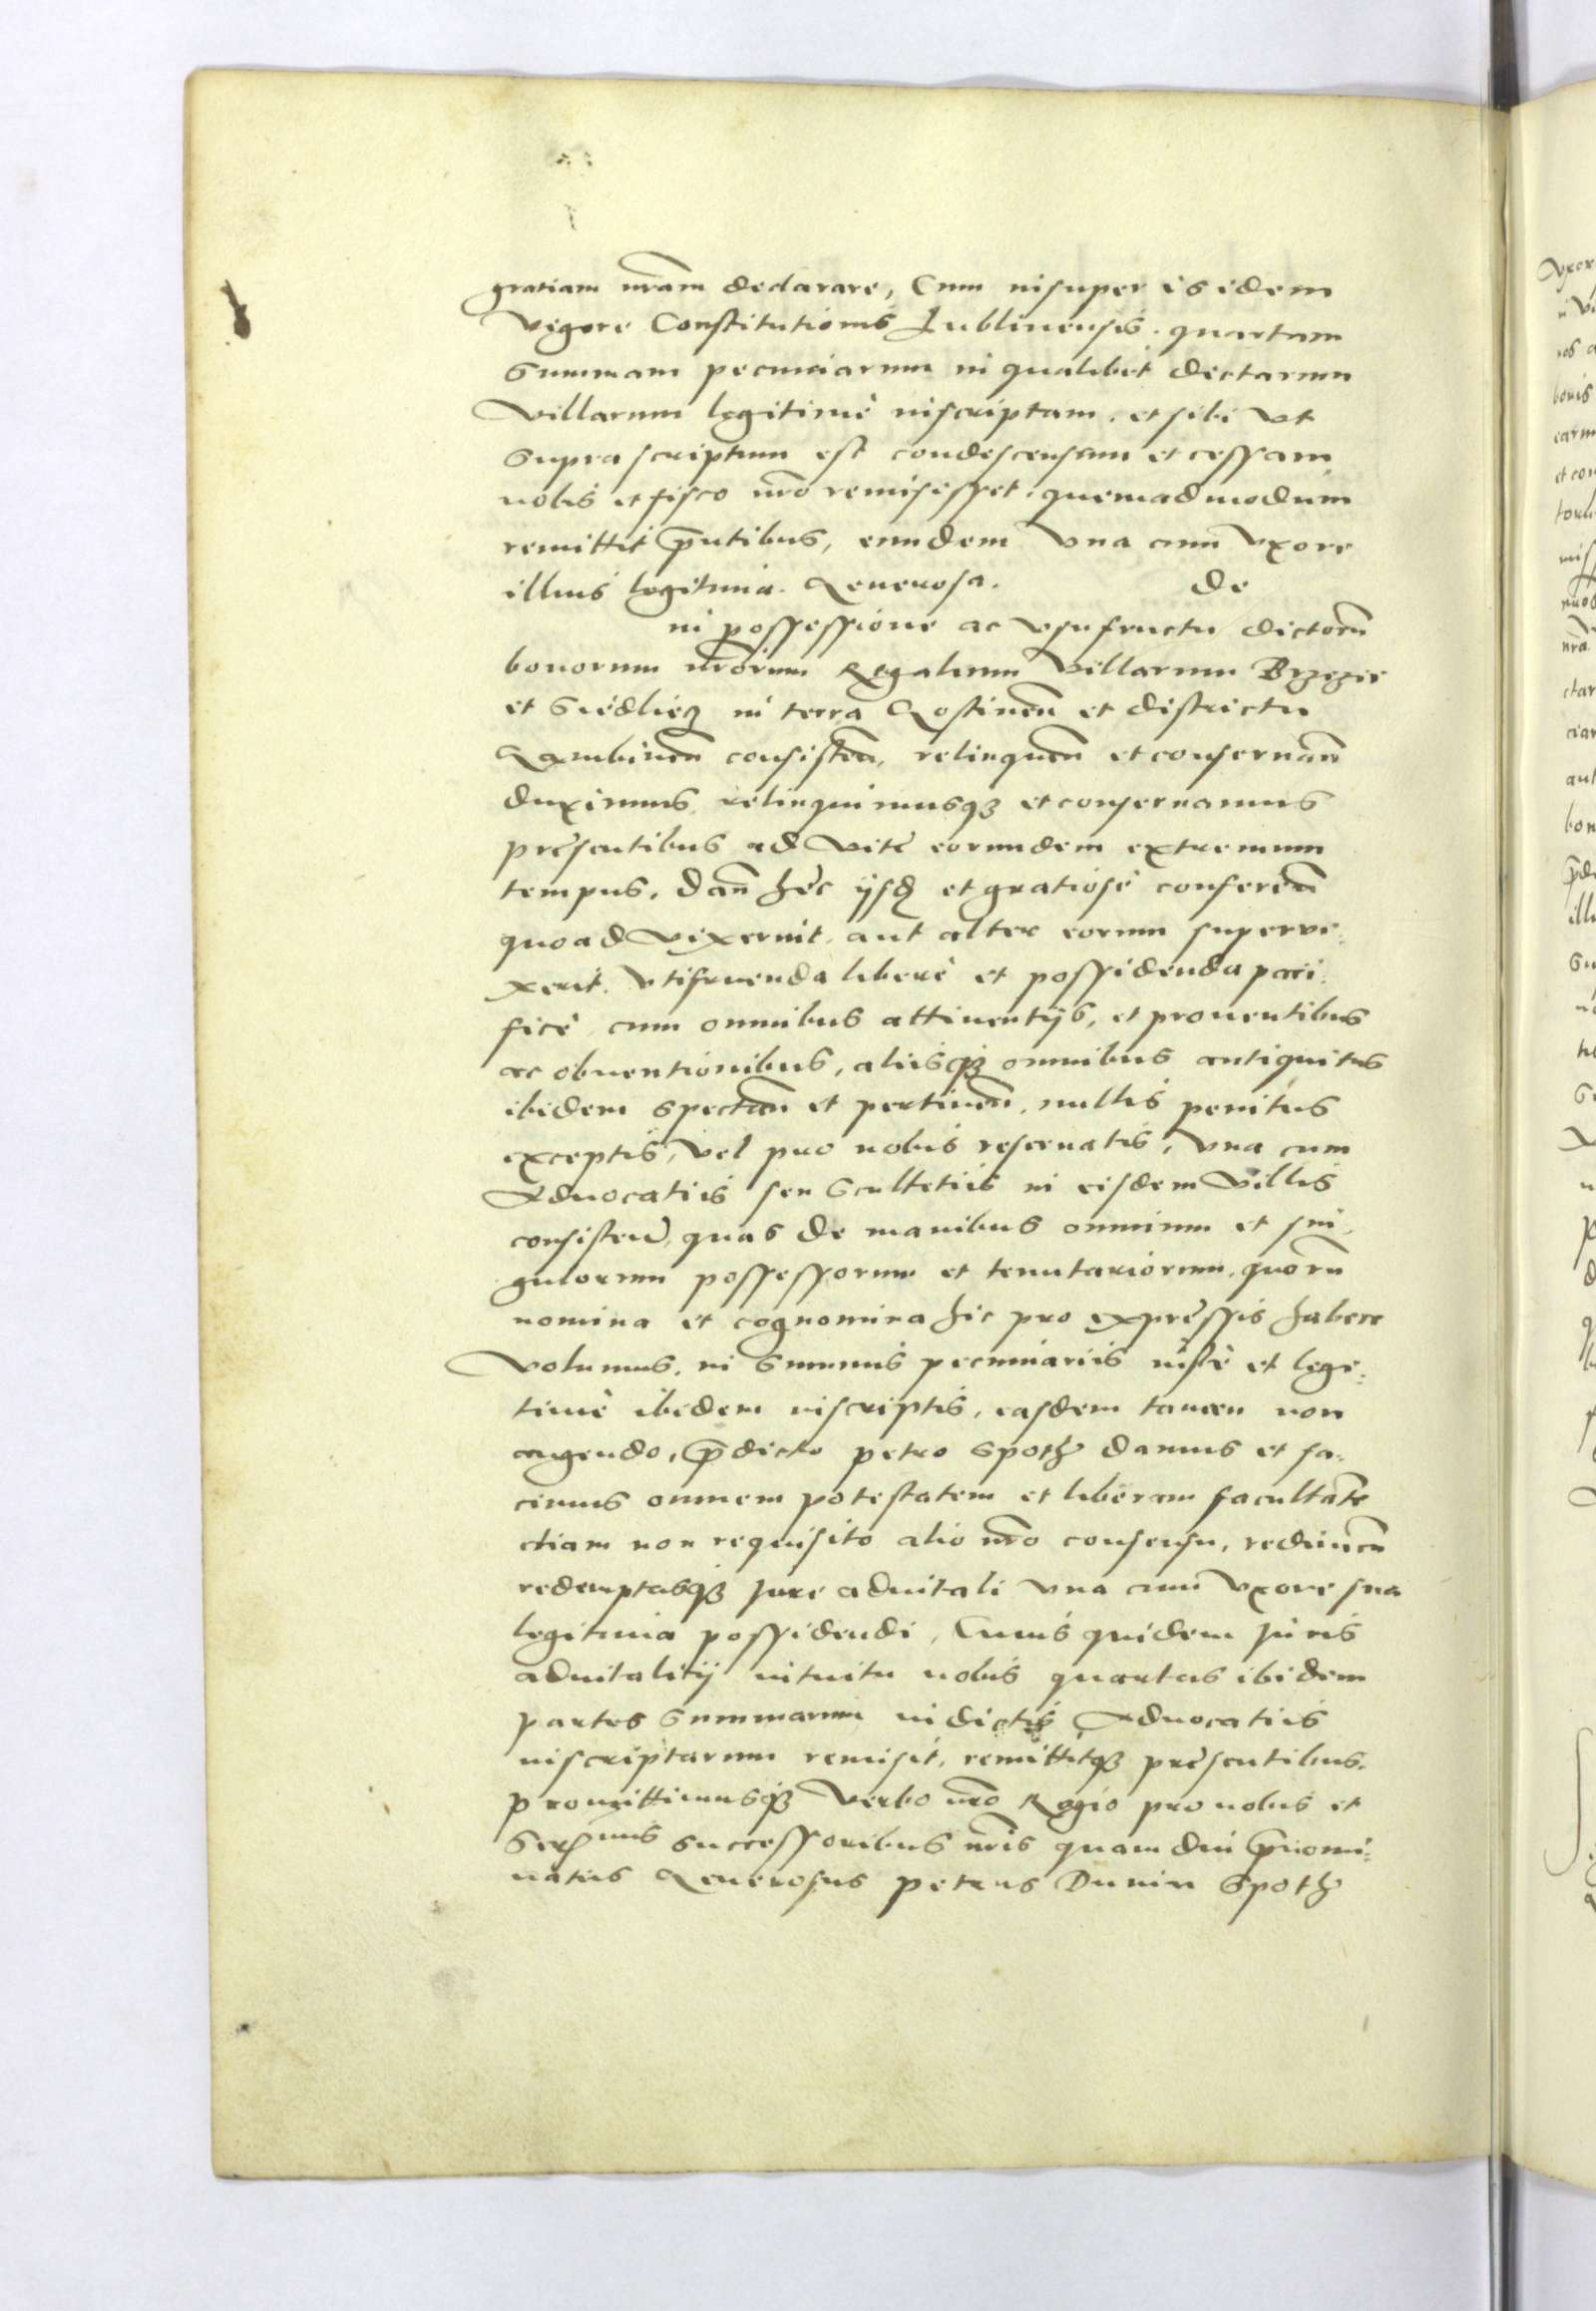 gratiam nrãm declarare, Cum insuper is idem
vigore Constitutionis Lublinensis. quartam
Summam pecuniarum in qualibet dictarum
Villarum legitimè inscriptam. et sibi vt
Suprascriptum est condescensam et cessam
nobis et fisco nrõ remisisset. quemadmodum
remittit p̃ntibus, eundem vna cum vxore
illius legitima. Generosa. de
in possessione ac vsufructu dictorũ
bonorum nrõrum Regalium Villarum Brzezie
et Siedliecz in terra Gostineñ et districtu
Gambineñ consisteñ, relinqueñ et conseruañ
duximus, relinquimusqꝫ et conseruamus
presentibus ad vite eorundem extremum
tempus. Dañ hec ijsd et gratiosè confereñ
quoad vixerint. aut alter eorum supervi:
xerit. Vtifruenda liberè et possidenda paci:
ficè cum omnibus attinentijs, et prouentibus
ac obuentionibus, aliisqꝫ omnibus antiquitus
ibidem spectañ et pertineñ. nullis penitus
exceptis, vel pro nobis reseruatis, vna cum
Aduocatiis seu Scultetiis in eisdem Villis
consisteñ, quas de manibus omnium et sin:
gulorum possessorum et tenutariorum. quorũ
nomina et cognomina hic pro expressis habere
volumus. in Summis pecuniariis iustè et legi:
timè ibidem inscriptis, easdem tamen non
augendo, p̃dicto Petro Spoth damus et fa:
cimus omnem potestatem et liberam facultatẽ
etiam non requisito alio nrõ consensu, redimeñ
redemptasqꝫ Jure aduitali vna cum vxore sua
legitima possidendi, Cuius quidem Juris
aduitalitij intuitu nobis quartas ibidem
partes Summarum in dictis Aduocatiis
inscriptarum remisit, remittitqꝫ presentibus.
promittimusqꝫ Verbo nrõ Regio pro nobis et
Serᵐⁱˢ successoribus nrĩs quam diu p̃nomi:
natus Generosus Petrus Dunin Spoth